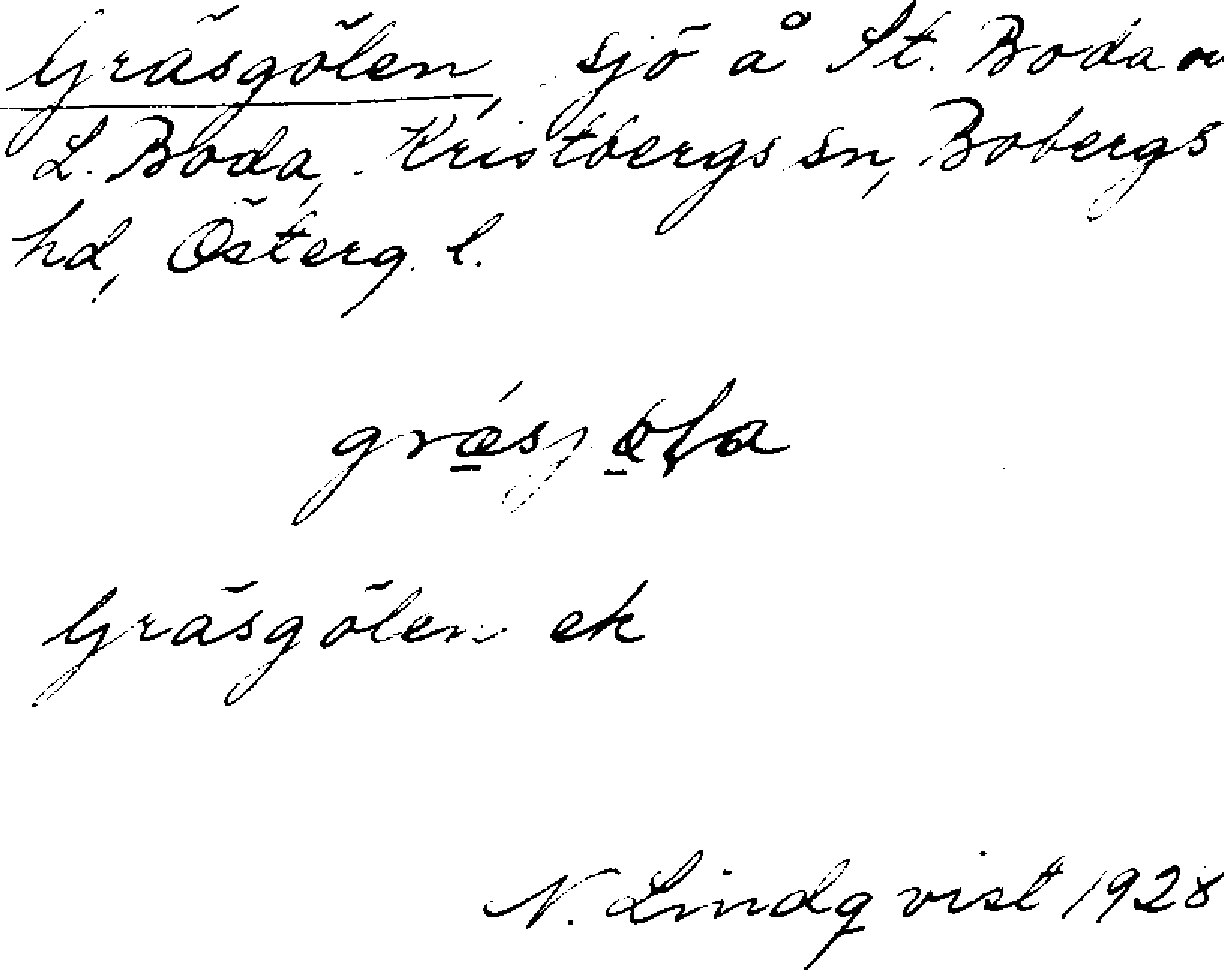 Gräsgölen, sjö å St. Boda
L. Boda, Kristbergs sn, Bobergs
hd, Österg. l.
Gräsgölen ek
N. Lindqvist 1928